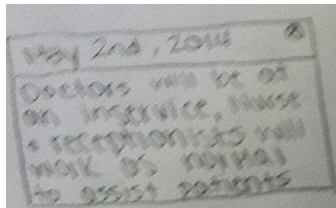 May 2nd, 2014
Doctors will be at
an inservice, Nurse
+ receptionists will
work as normal
to assist patients